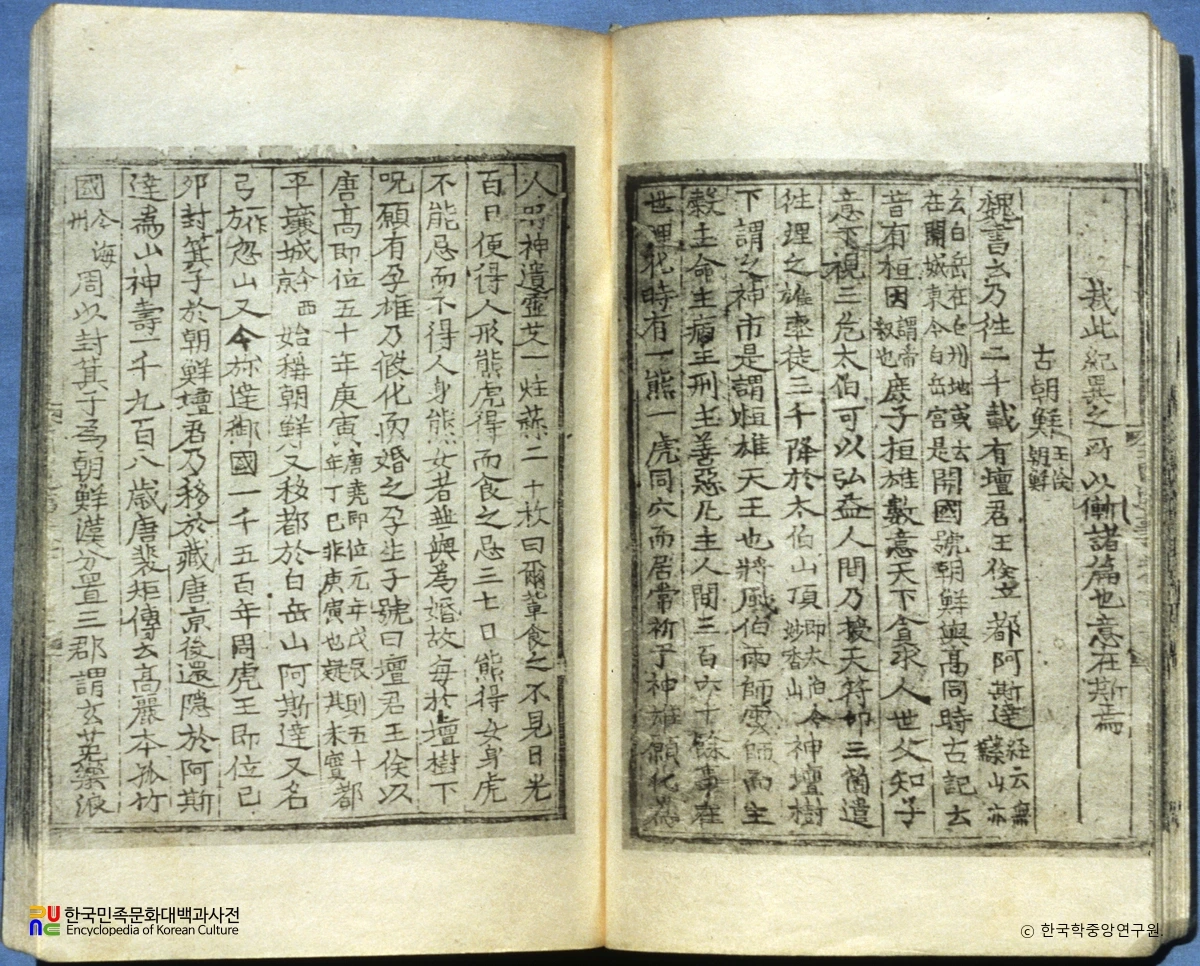 哉此紀異之所以慚諸篇也意在斯焉
古朝鮮 王倹朝鮮
魏書云乃徃二千載有壇君王倹立都阿斯達 經云無葉山亦
云白岳在白州地或云在開城東今白岳宮是 開國號朝鮮與高同時古記云
昔有桓因 謂帝釋也 庶子桓雄數意天下貪求人世父知子
意下視三危太伯可以弘益人間乃授天符印三箇遣
徃理之雄率徒三千降於太伯山頂 即太伯今妙香山 神壇樹
下謂之神市是謂桓雄天王也將風伯雨師雲師而主
榖主命主病主刑主善惡凡主人間三百六十餘事在
世理化時有一熊一虎同穴而居常祈于神雄願化為
人時神遺靈艾一炷蒜二十枚曰爾輩食之不見日光
百日便得人形熊虎得而食之忌三七日熊得女身虎
不能忌而不得人身熊女者無與為婚故每於壇樹下
呪願有孕雄乃假化而婚之孕生子號曰壇君王倹以
唐高即位五十年庚寅 唐堯即位元年戊辰則五十年丁巳非庚寅也疑其未實 都
平壤城 今西京 始稱朝鮮又移都於白岳山阿斯達又名
弓 一作方 忽山又今旀達御國一千五百年周虎王即位己
卯封箕子於朝鮮壇君乃移於藏唐京後還隱於阿斯
達為山神壽一千九百八歳唐裴矩傳云高麗本孤竹
國 今海州 周以封箕子為朝鮮漢分置三郡謂玄菟樂浪
한국민족문화대백과사전
Encyclopedia of Korean Culture
© 한국학중앙연구원